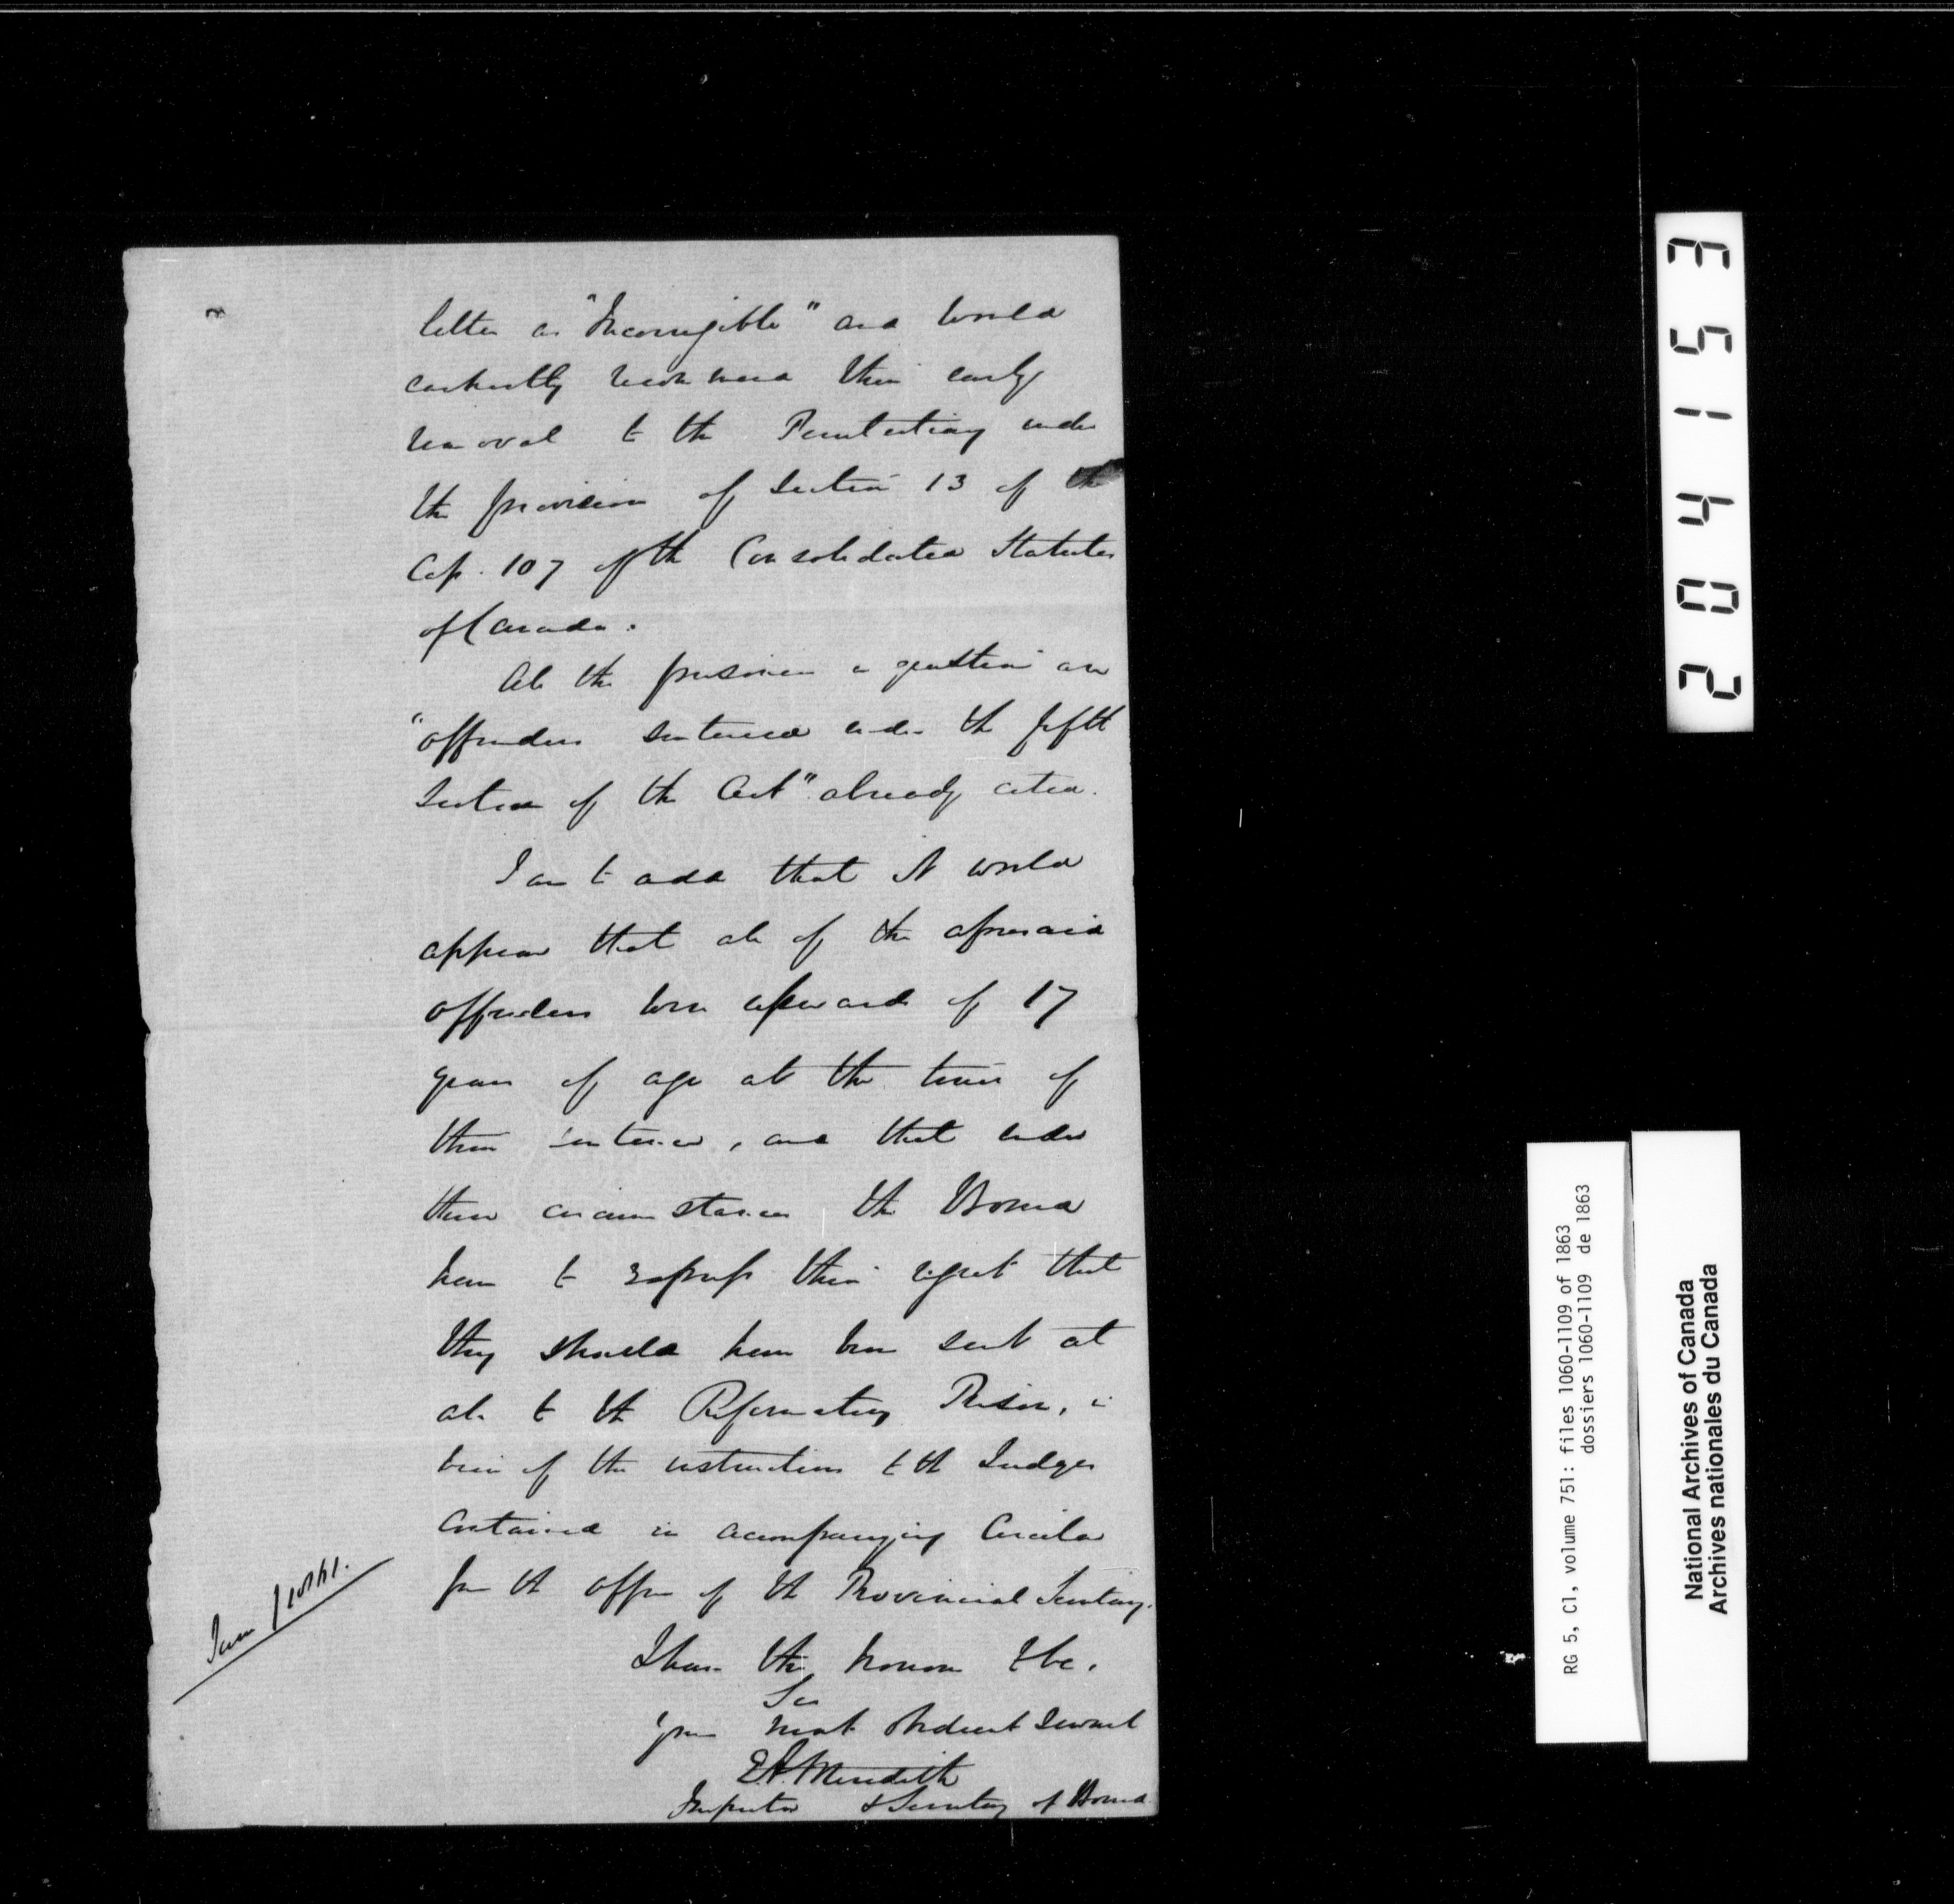 letter as "Incorrigible" and would
earnestly recommend their early
removal to the Penitentiary under
the provision of Section 13 of the
Cap. 107 of the Consolidated Statutes
of Canada.
All the prisoners in question are
"offenders sentenced under the fifth
Section of the Act" already cited.
I am to add that it would
appear that all of the aforesaid
offenders were upwards of 17
years of age at the time of
their sentence, and that under
these circumstances the Board
have to express their regret that
they should have been sent at
all to the Reformatory Prison, in
view of the instructions to the Judges
contained in accompanying Circular
from the office of the Provincial Secretary.
I have the honor &c.
Sir
Your most obedient Servant
E.A. Meredith
Inspector & Secretary of Board
204153
RG 5, C1, volume 751: files 1060-1109 of 1863
dossiers 1060-1109 de 1863
National Archives of Canada
Archives nationales du Canada